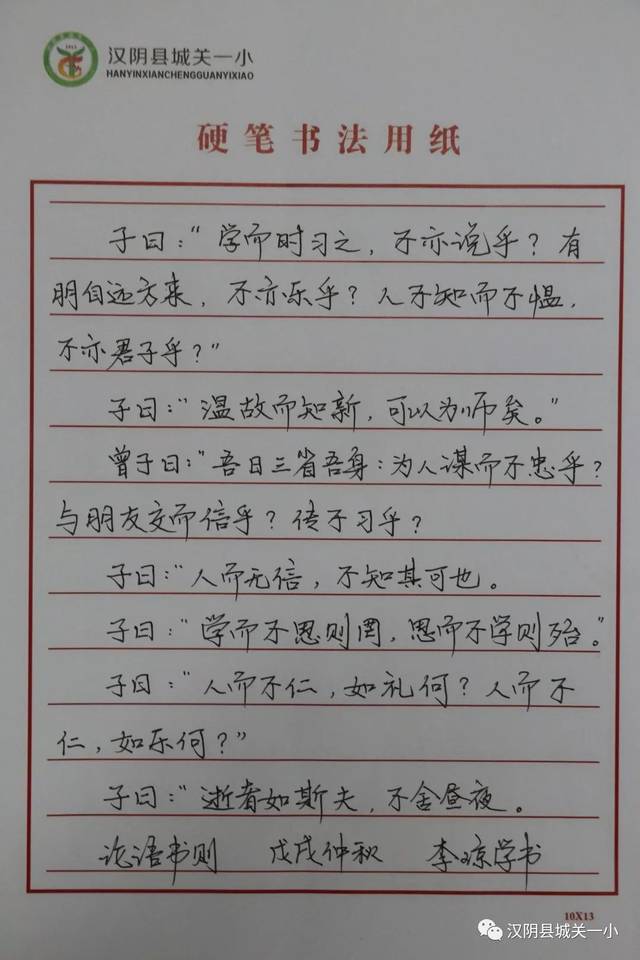 汉阴县城关一小
HANYINXIANCHENGGUANYIXIAO
硬笔书法用纸
子曰：“学而时习之，不亦说乎？有
朋自远方来，不亦乐乎？人不知而不愠，
不亦君子乎？”
子曰：“温故而知新，可以为师矣。”
曾子曰：“吾日三省吾身：为人谋而不忠乎？
与朋友交而信乎？传不习乎？
子曰：“人而无信，不知其可也。
子曰：“学而不思则罔，思而不学则殆。”
子曰：“人而不仁，如礼何？人而不
仁，如乐何？”
子曰：“逝者如斯夫，不舍昼夜。
论语书则 戊戌仲秋 李琼学书
10X13
汉阴县城关一小